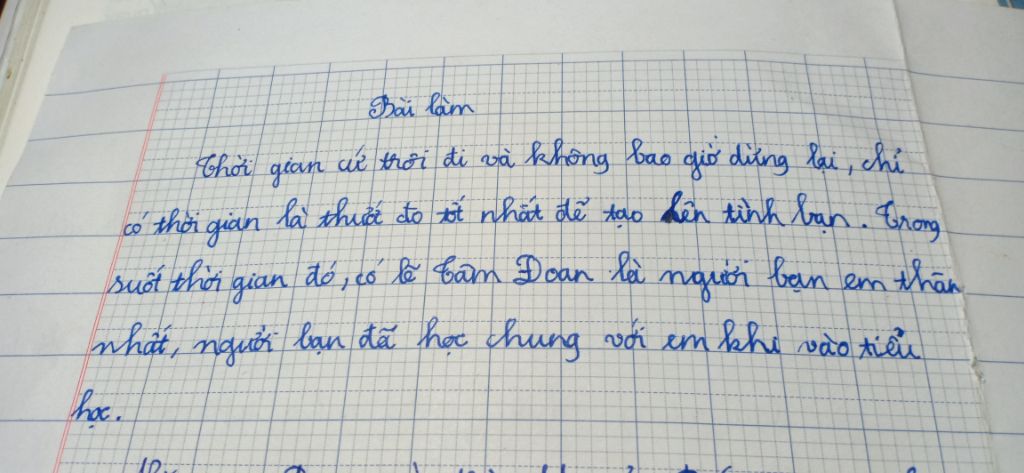 Bài làm
Thời gian cứ trôi đi và không bao giờ dừng lại, chỉ
có thời gian là thước đo tốt nhất để tạo lên tình bạn. Trong
suốt thời gian đó, có lẽ Tâm Đoan là người bạn em thân
nhất, người bạn đã học chung với em khi vào tiểu
học.